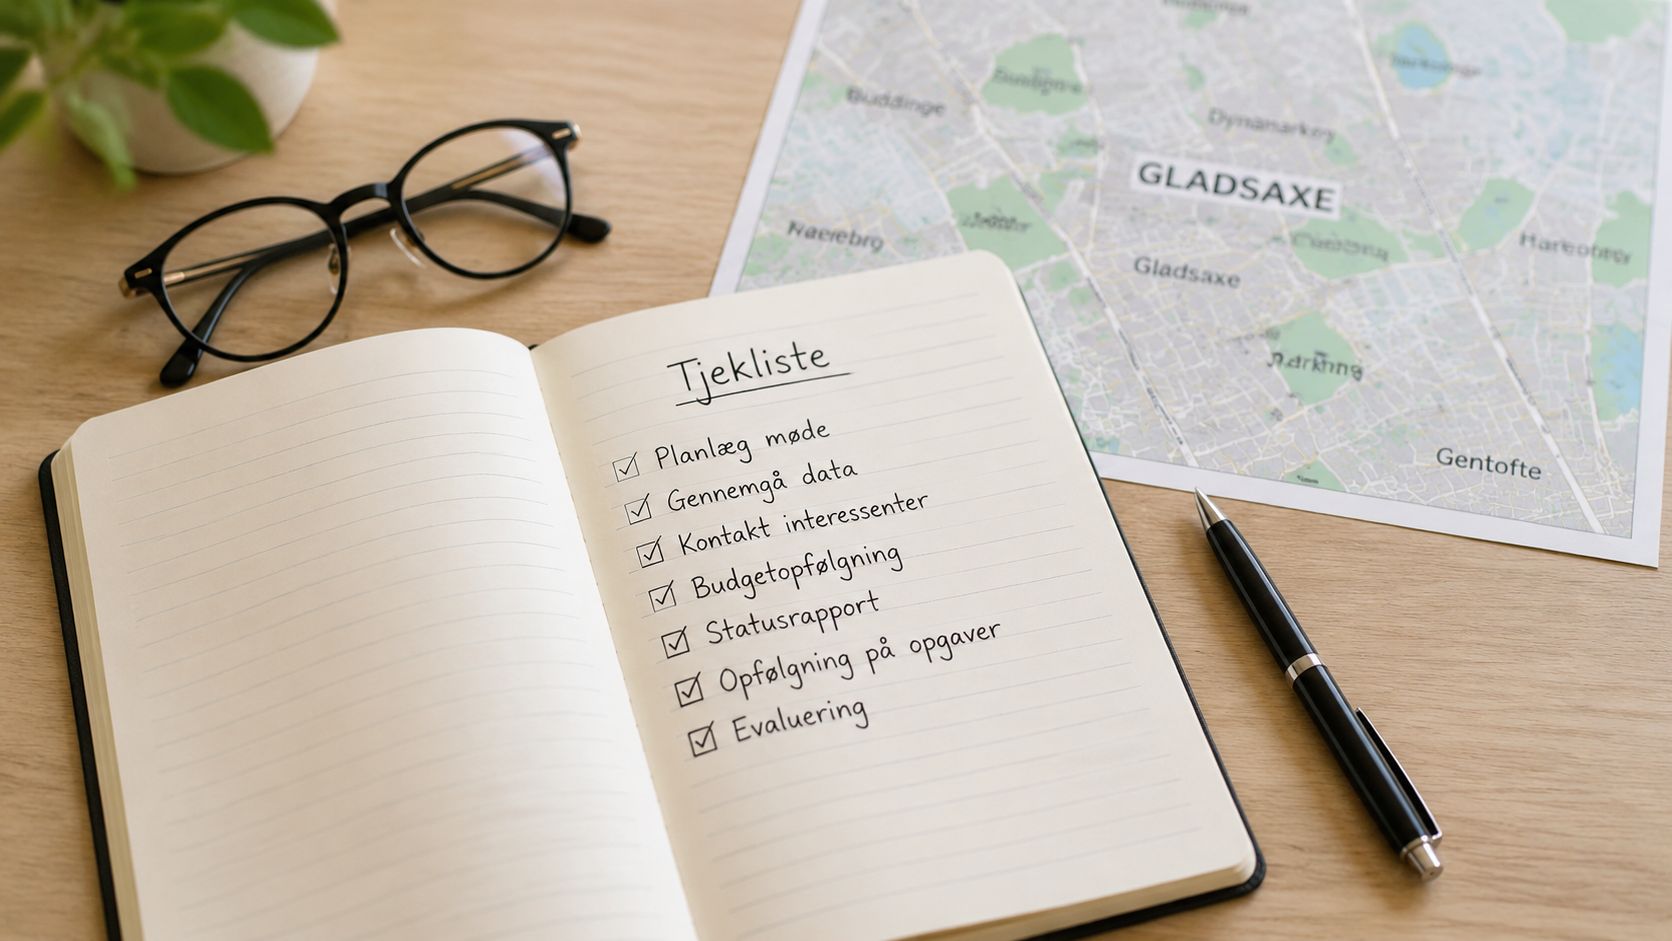 Tjekliste
Planlæg møde
Gennemgå data
Kontakt interessenter
Budgetopfølgning
Statusrapport
Opfølgning på opgaver
Evaluering
Buddinge
GLADSAXE
Gladsaxe
Gentofte